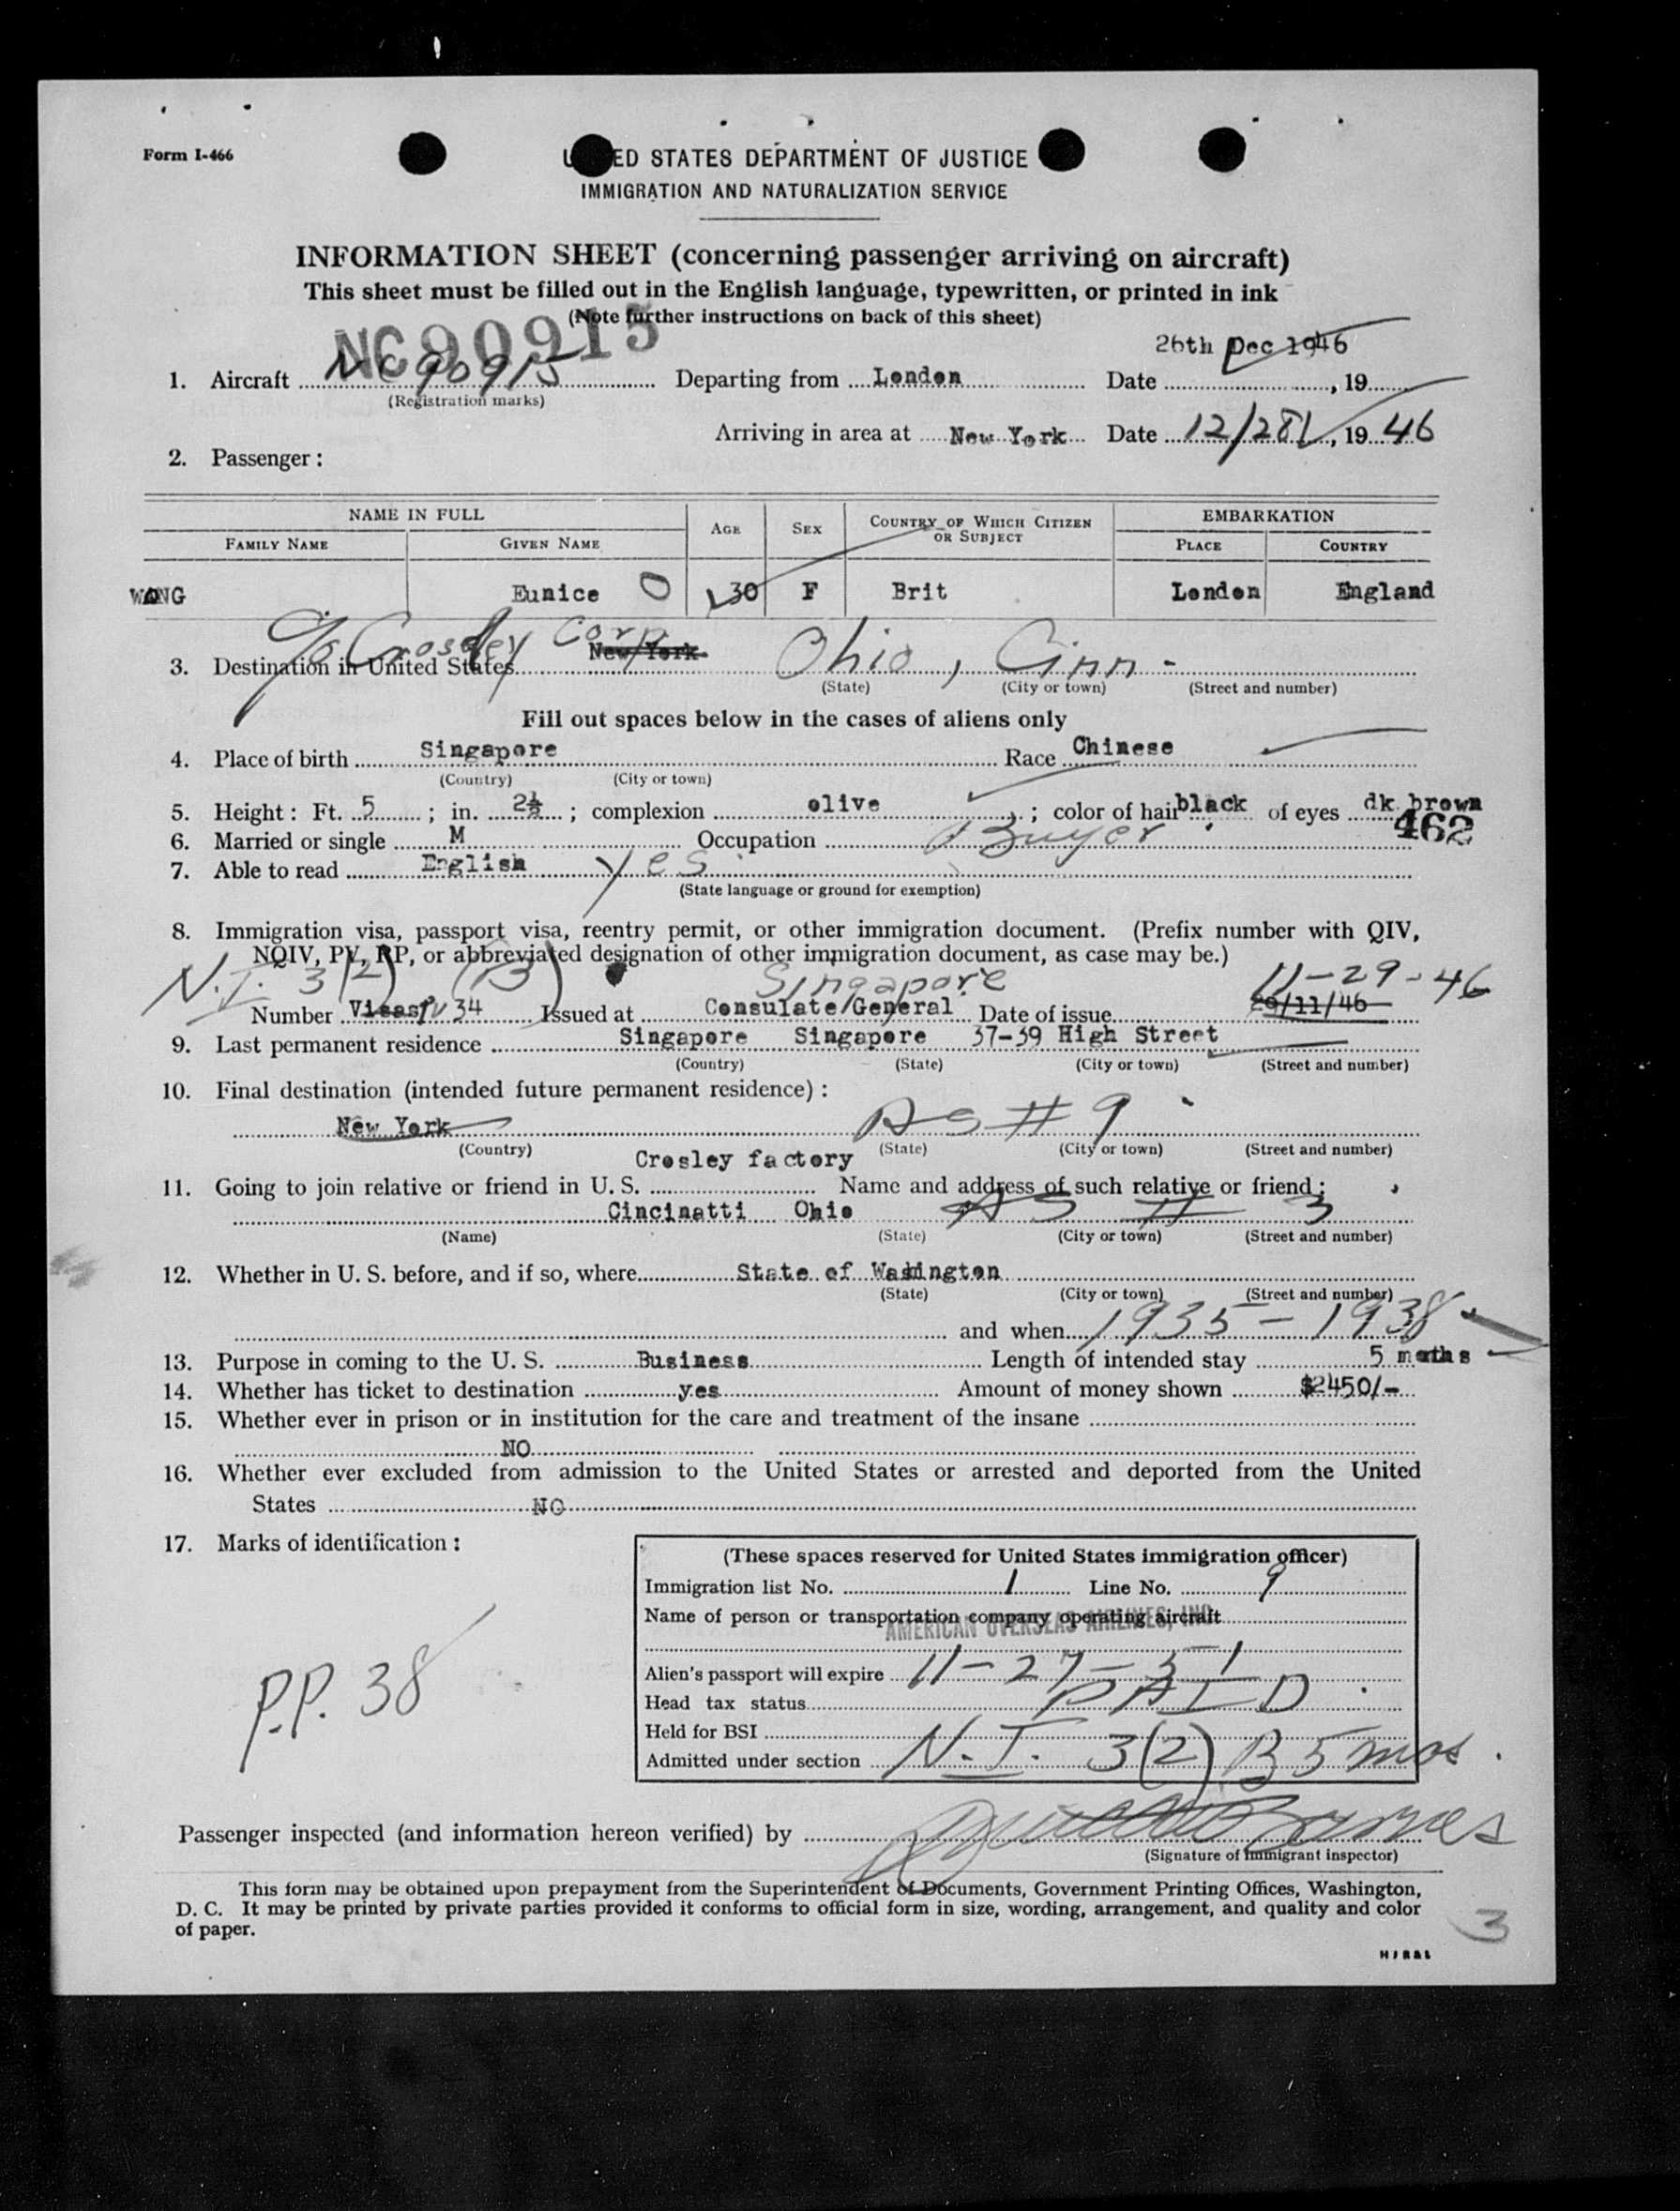 Form I-466
UNITED STATES DEPARTMENT OF JUSTICE
IMMIGRATION AND NATURALIZATION SERVICE
INFORMATION SHEET (concerning passenger arriving on aircraft)
This sheet must be filled out in the English language, typewritten, or printed in ink
(Note further instructions on back of this sheet)
NC90915
26th Dec 1946
1. Aircraft NC90915 Departing from London Date , 19
(Registration marks)
Arriving in area at New York Date 12/28/, 1946
2. Passenger :
NAME IN FULL AGE SEX COUNTRY OF WHICH CITIZEN OR SUBJECT EMBARKATION
FAMILY NAME GIVEN NAME PLACE COUNTRY
WONG Eunice O 30 F Brit London England
c/o Crosley Corp
3. Destination in United States New York Ohio, Cinn.
(State) (City or town) (Street and number)
Fill out spaces below in the cases of aliens only
4. Place of birth Singapore Race Chinese
(Country) (City or town)
5. Height : Ft. 5 ; in. 2½ ; complexion olive ; color of hair black of eyes dk brown
462
6. Married or single M Occupation Buyer
7. Able to read English yes
(State language or ground for exemption)
8. Immigration visa, passport visa, reentry permit, or other immigration document. (Prefix number with QIV,
NQIV, PV, RP, or abbreviated designation of other immigration document, as case may be.)
N.I. 3(2) (B) Singapore 11-29-46
Number Visas PV 34 Issued at Consulate General Date of issue 29/11/46
9. Last permanent residence Singapore Singapore 37-39 High Street
(Country) (State) (City or town) (Street and number)
10. Final destination (intended future permanent residence) :
New York AS # 9
(Country) (State) (City or town) (Street and number)
Crosley factory
11. Going to join relative or friend in U. S. Name and address of such relative or friend :
Cincinatti Ohio AS # 3
(Name) (State) (City or town) (Street and number)
12. Whether in U. S. before, and if so, where State of Washington
(State) (City or town) (Street and number)
and when 1935-1938
13. Purpose in coming to the U. S. Business Length of intended stay 5 mnths
14. Whether has ticket to destination yes Amount of money shown $2450/-
15. Whether ever in prison or in institution for the care and treatment of the insane
NO
16. Whether ever excluded from admission to the United States or arrested and deported from the United
States NO
17. Marks of identification :
P.P. 38
(These spaces reserved for United States immigration officer)
Immigration list No. 1 Line No. 9
Name of person or transportation company operating aircraft
AMERICAN OVERSEAS AIRLINES, INC.
Alien's passport will expire 11-27-51
Head tax status PAID
Held for BSI
Admitted under section N.I. 3(2) B 5 mos.
Passenger inspected (and information hereon verified) by
(Signature of immigrant inspector)
This form may be obtained upon prepayment from the Superintendent of Documents, Government Printing Offices, Washington,
D. C. It may be printed by private parties provided it conforms to official form in size, wording, arrangement, and quality and color
of paper.
3